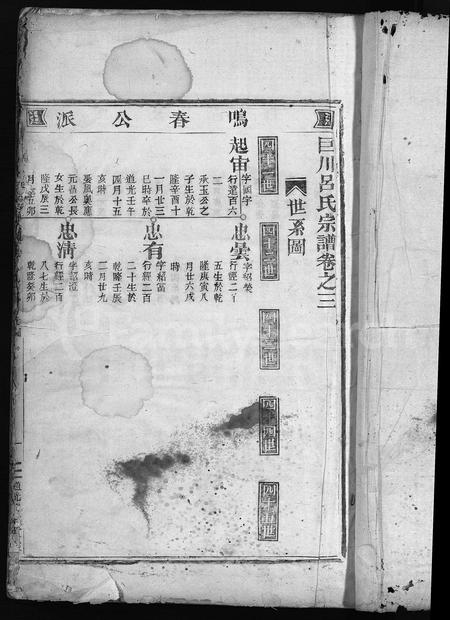 巨川呂氏宗譜卷之三
世系圖
四十一世
四十二世
四十三世
四十四世
四十五世
鳴春公派
起宙
行道百六
十二
承玉公之
子生於乾
隆辛酉十
一月廿三
巳時卒於
道光壬午
四月十五
亥時
元品公長
女生於乾
隆戊辰三
忠曇
字紹榮
五生於乾
隆庚寅八
月廿六戌
時
忠有
字紹富
行經二百
二十生於
乾隆壬辰
二月廿九
亥時
忠清
行經二百
乾隆癸卯